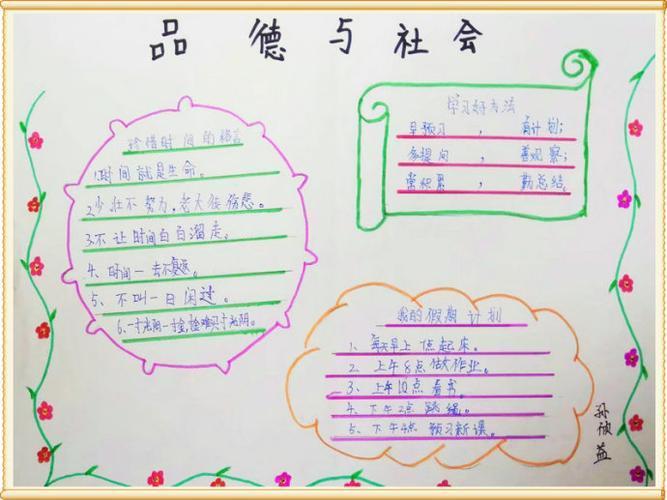 品德与社会
珍惜时间的格言
1.时间就是生命。
2.少壮不努力,老大徒伤悲。
3.不让时间白白溜走。
4、时间一去不复返。
5、不叫一日闲过。
6、一寸光阴一寸金,寸金难买寸光阴。
学习好方法
早预习,有计划;
多提问,善观察;
常积累,勤总结。
我的假期计划
1、每天早上 点起床。
2、上午8点做作业。
3、上午10点看书。
4、下午2点跳绳。
5、下午4点预习新课。
孙 益